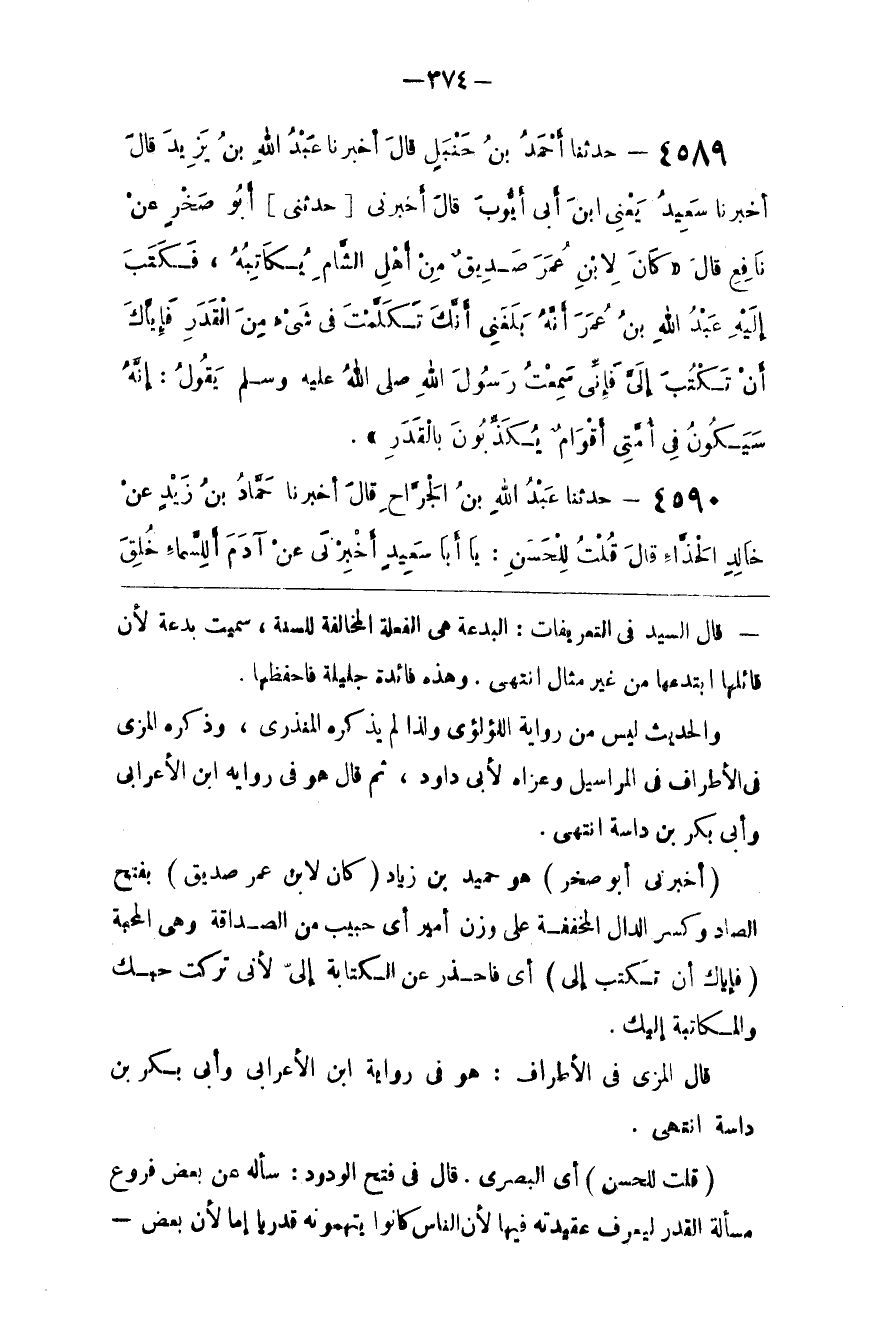 — ٣٧٤ —
٤٥٨٩ — حدثنا أَحْمَدُ بنُ حَنْبَلٍ قالَ أخبرنا عَبْدُ اللهِ بنُ يَزِيدَ قالَ
أخبرنا سَعِيدُ يَعْنِى ابنَ أَبى أيُّوبَ قالَ أخبرنى [ حدثنى ] أَبُو صَخْرٍ عنْ
نَافِعٍ قالَ « كَانَ لِابْنِ عُمَرَ صَدِيقٌ مِنْ أَهْلِ الشَّامِ يُكَاتِبُهُ ، فَكَتَبَ
إلَيْهِ عَبْدُ اللهِ بنُ عُمَرَ أنَّهُ بَلَغَنِى أنَّكَ تَكَلَّمْتَ فى شَىْءٍ مِنَ الْقَدَرِ فَإيَّاكَ
أنْ تَكْتُبَ إلَىَّ فَإنِّى سَمِعْتُ رَسُولَ اللهِ صلى اللهُ عليه وسلم يَقُولُ : إنَّهُ
سَيَكُونُ فِى أُمَّتِى أَقْوَامٌ يُكَذِّبُونَ بالْقَدَرِ » .
٤٥٩٠ — حدثنا عَبْدُ اللهِ بنُ الجَرَّاحِ قالَ أخبرنا حَمَّادُ بنُ زَيْدٍ عنْ
خالِدٍ الحَذَّاءِ قالَ قُلْتُ لِلْحَسَنِ : يا أَبا سَعِيدٍ أَخْبِرْنى عنْ آدَمَ أَلِلسَّماءِ خُلِقَ
— قال السيد فى التعريفات : البدعة هى الفعلة المخالفة للسنة ، سميت بدعة لأن
قائلها ابتدعها من غير مثال انتهى . وهذه فائدة جليلة فاحفظها .
والحديث ليس من رواية اللؤلؤى ولذا لم يذكره المنذرى ، وذكره المزى
فى الأطراف فى المراسيل وعزاه لأبى داود ، ثم قال هو فى روايه ابن الأعرابى
وأبى بكر بن داسة انتهى .
( أخبرنى أبو صخر ) هو حميد بن زياد ( كان لابن عمر صديق ) بفتح
الصاد وكسر الدال المخففة على وزن أمير أى حبيب من الصداقة وهى المحبة
( فإياك أن تكتب إلى ) أى فاحذر عن الكتابة إلىّ لأنى تركت حبك
والمكاتبة إليك .
قال المزى فى الأطراف : هو فى رواية ابن الأعرابى وأبى بكر بن
داسة انتهى .
( قلت للحسن ) أى البصرى . قال فى فتح الودود : سأله عن بعض فروع
مسألة القدر ليعرف عقيدته فيها لأن الناس كانوا يتهمونه قدريا إما لأن بعض —